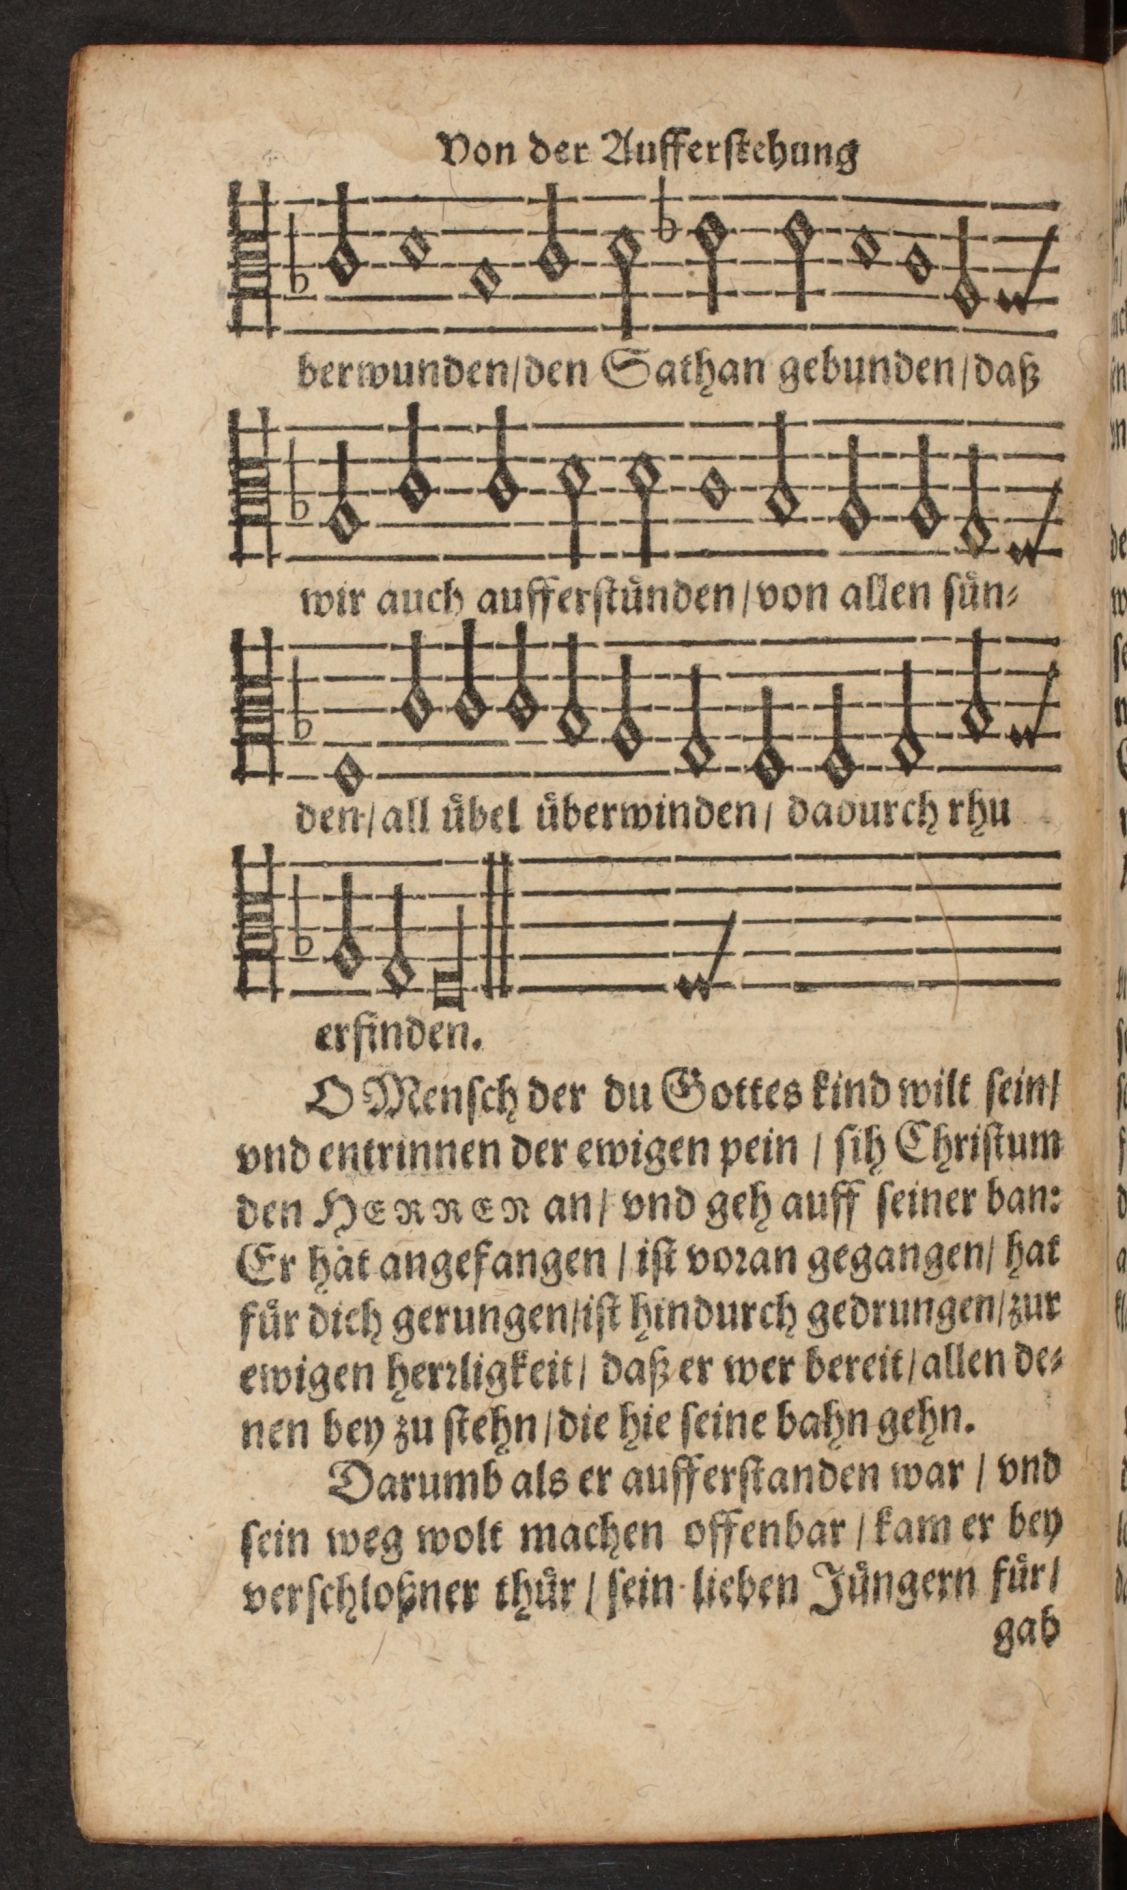 Von der Aufferstehung
berwunden/den Sathan gebunden/daß
wir auch aufferstünden/von allen sün-
den/all übel überwinden/ dadurch rhu
erfinden.
O Mensch der du Gottes kind wilt sein/
vnd entrinnen der ewigen pein / sih Christum
den HERREN an/ vnd geh auff seiner ban:
Er hat angefangen / ist voran gegangen/ hat
für dich gerungen/ist hindurch gedrungen/zur
ewigen herrligkeit/ daß er wer bereit/allen de-
nen bey zu stehn/die hie seine bahn gehn.
Darumb als er aufferstanden war / vnd
sein weg wolt machen offenbar / kam er bey
verschloßner thür / sein lieben Jüngern für/
gab